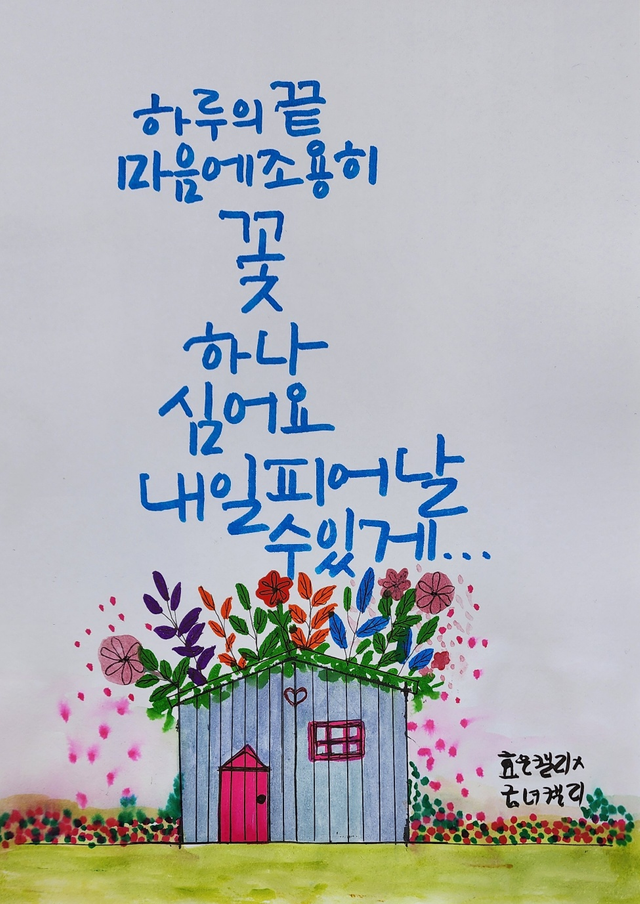 하루의 끝
마음에 조용히
꽃
하나
심어요
내일 피어날
수 있게...
효은캘리 x